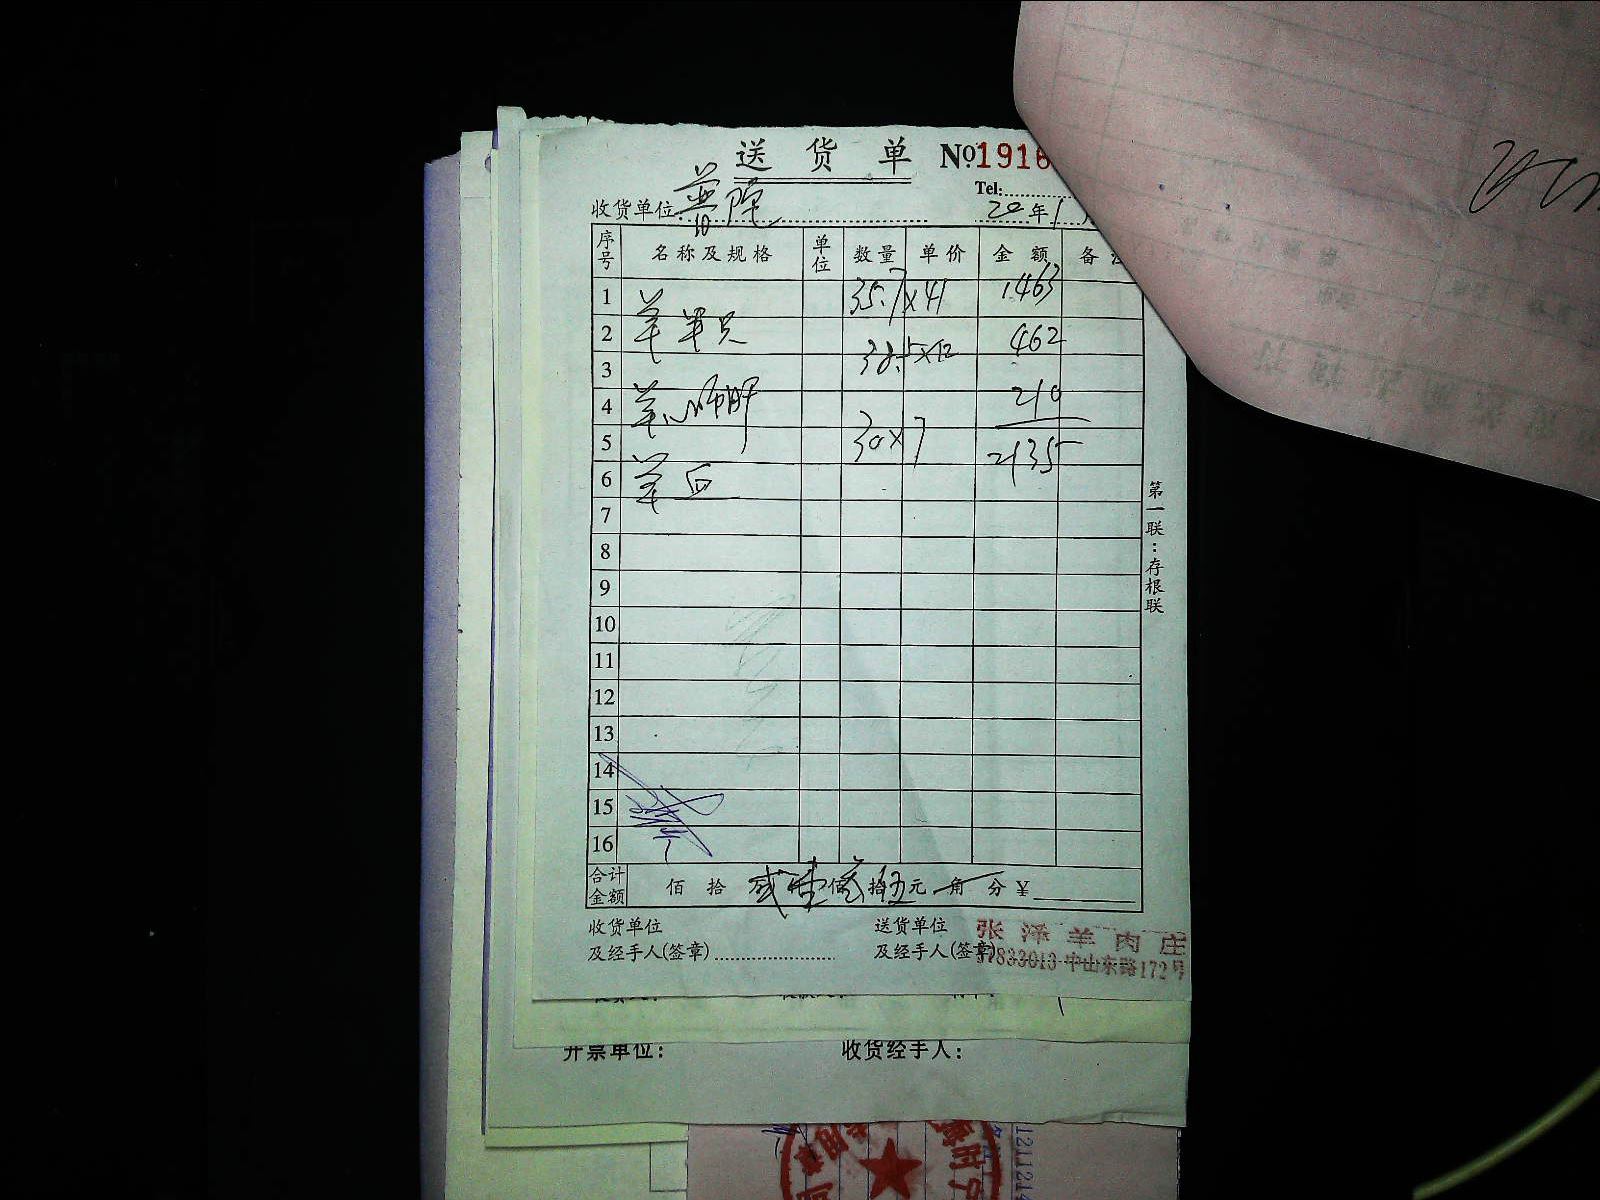 送货单 №1916
Tel:
收货单位:
20年1月
序号 名称及规格 单位 数量 单价 金额 备注
1 35.7×41 1463
2 羊半只 38.5×12 462
3
4 羊心肺肝 210
5 30×7 2135
6 羊血
7
8
9
10
11
12
13
14
15
16
合计金额 佰 拾 贰 仟 壹 佰 叁 拾 伍 元 角 分 ¥
收货单位 送货单位
及经手人(签章) 及经手人(签章)
张泽羊肉庄
57833013 中山东路172号
第一联:存根联
开票单位: 收货经手人: